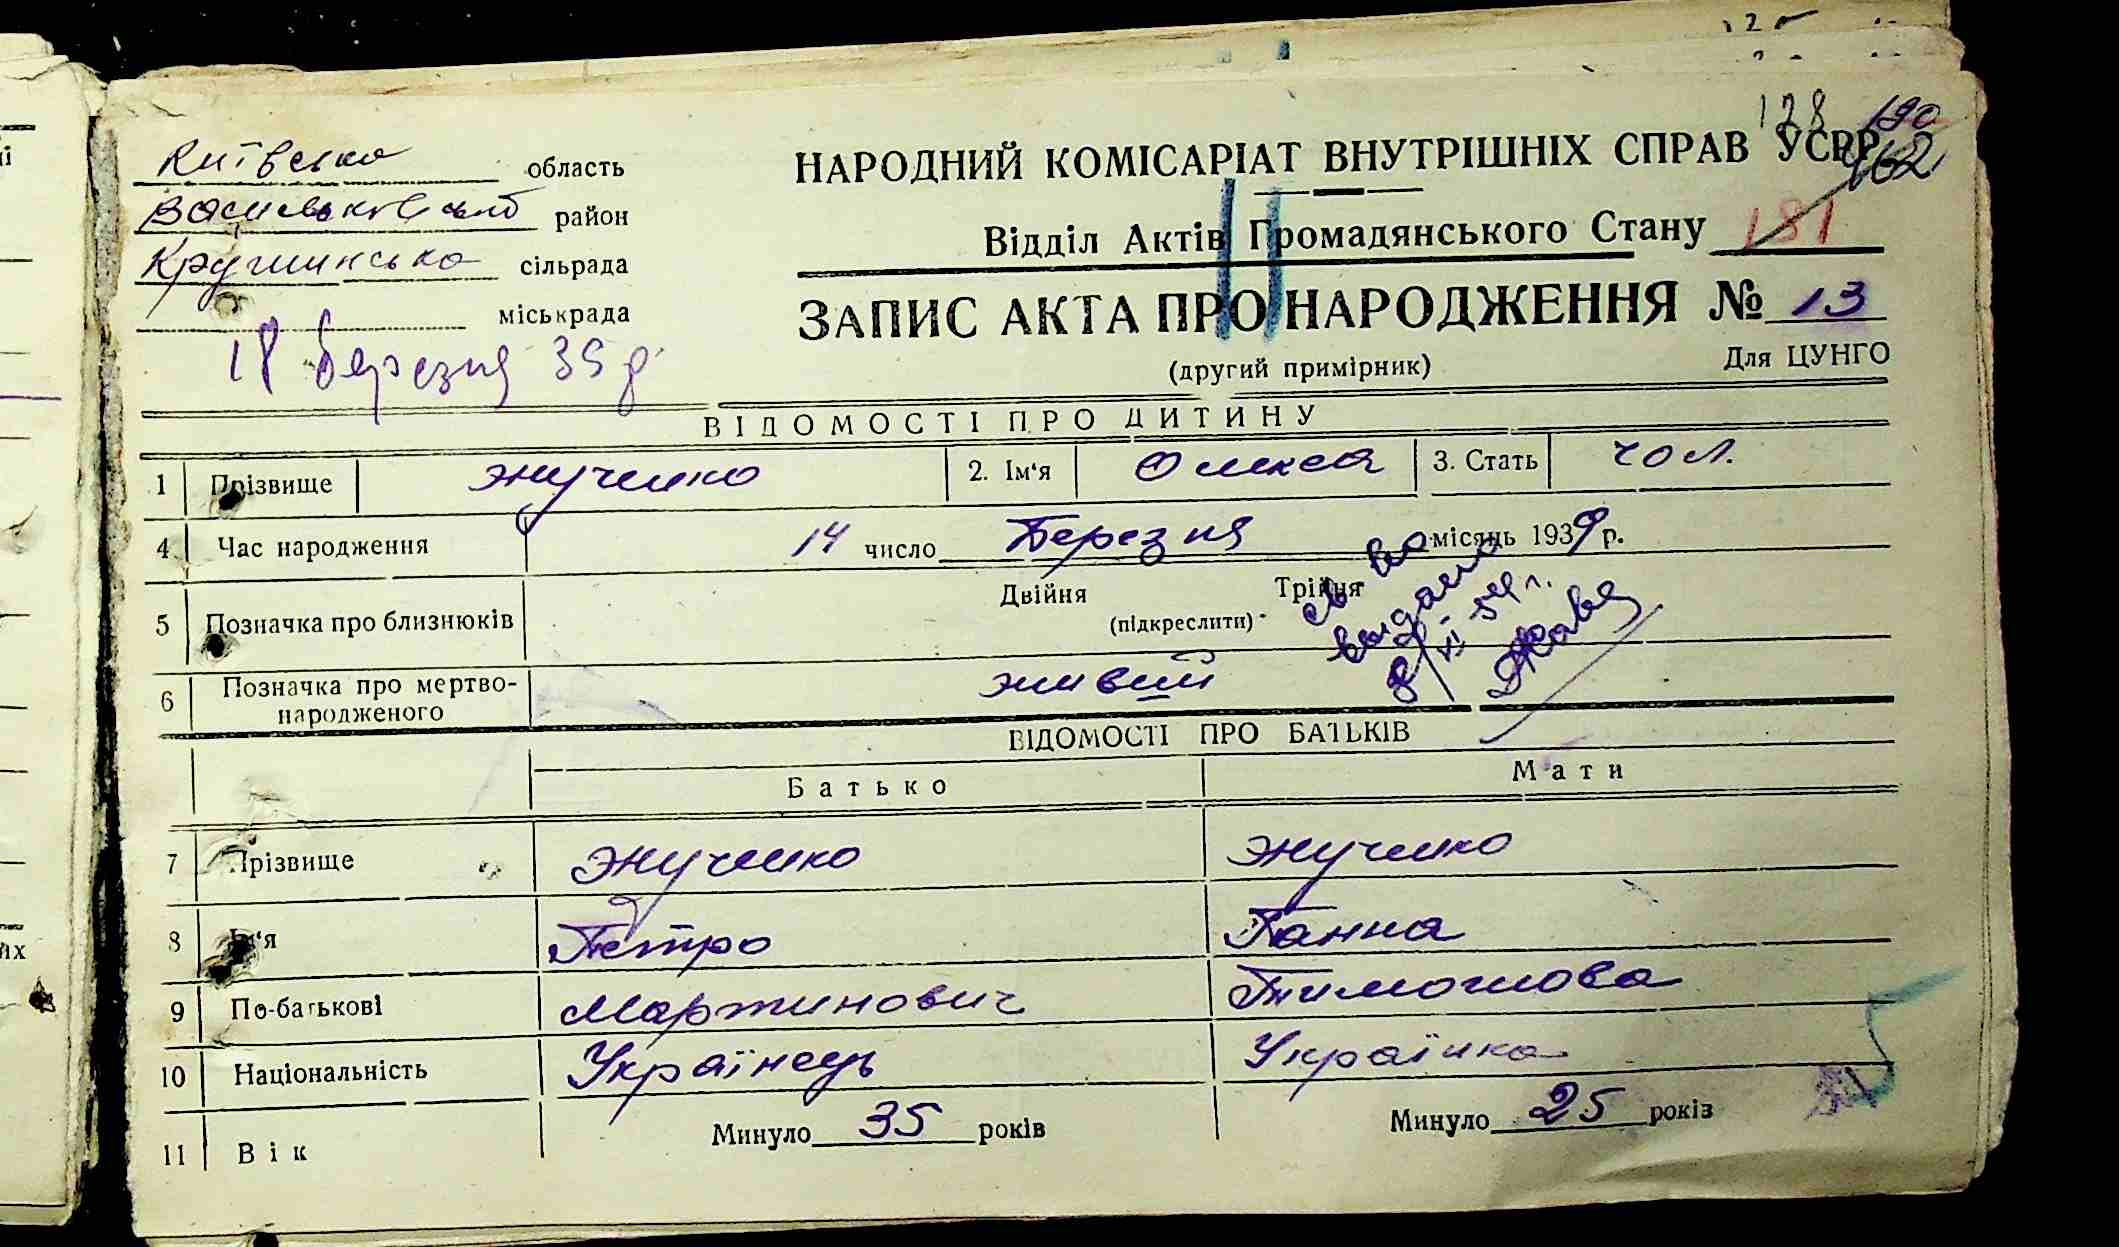 Київська область
Васильківський район
Крушинська сільрада
міськрада
18 березня 35 р
128 190
162
НАРОДНИЙ КОМІСАРІАТ ВНУТРІШНІХ СПРАВ УСРР
Відділ Актів Громадянського Стану 181
ЗАПИС АКТА ПРО НАРОДЖЕННЯ № 13
(другий примірник) Для ЦУНГО
ВІДОМОСТІ ПРО ДИТИНУ
1 Прізвище Жученко 2. Ім'я Олекса 3. Стать чол.
4 Час народження 14 число Березня місяць 1939 р.
5 Позначка про близнюків Двійня Трійня
(підкреслити)
св-во
выдано
8/XI-54 г.
6 Позначка про мертво-
народженого живий
ВІДОМОСТІ ПРО БАТЬКІВ
Батько Мати
7 Прізвище Жученко Жученко
8 Ім'я Петро Ганна
9 По-батькові Мартинович Тимошова
10 Національність Українець Українка
11 Вік Минуло 35 років Минуло 25 років